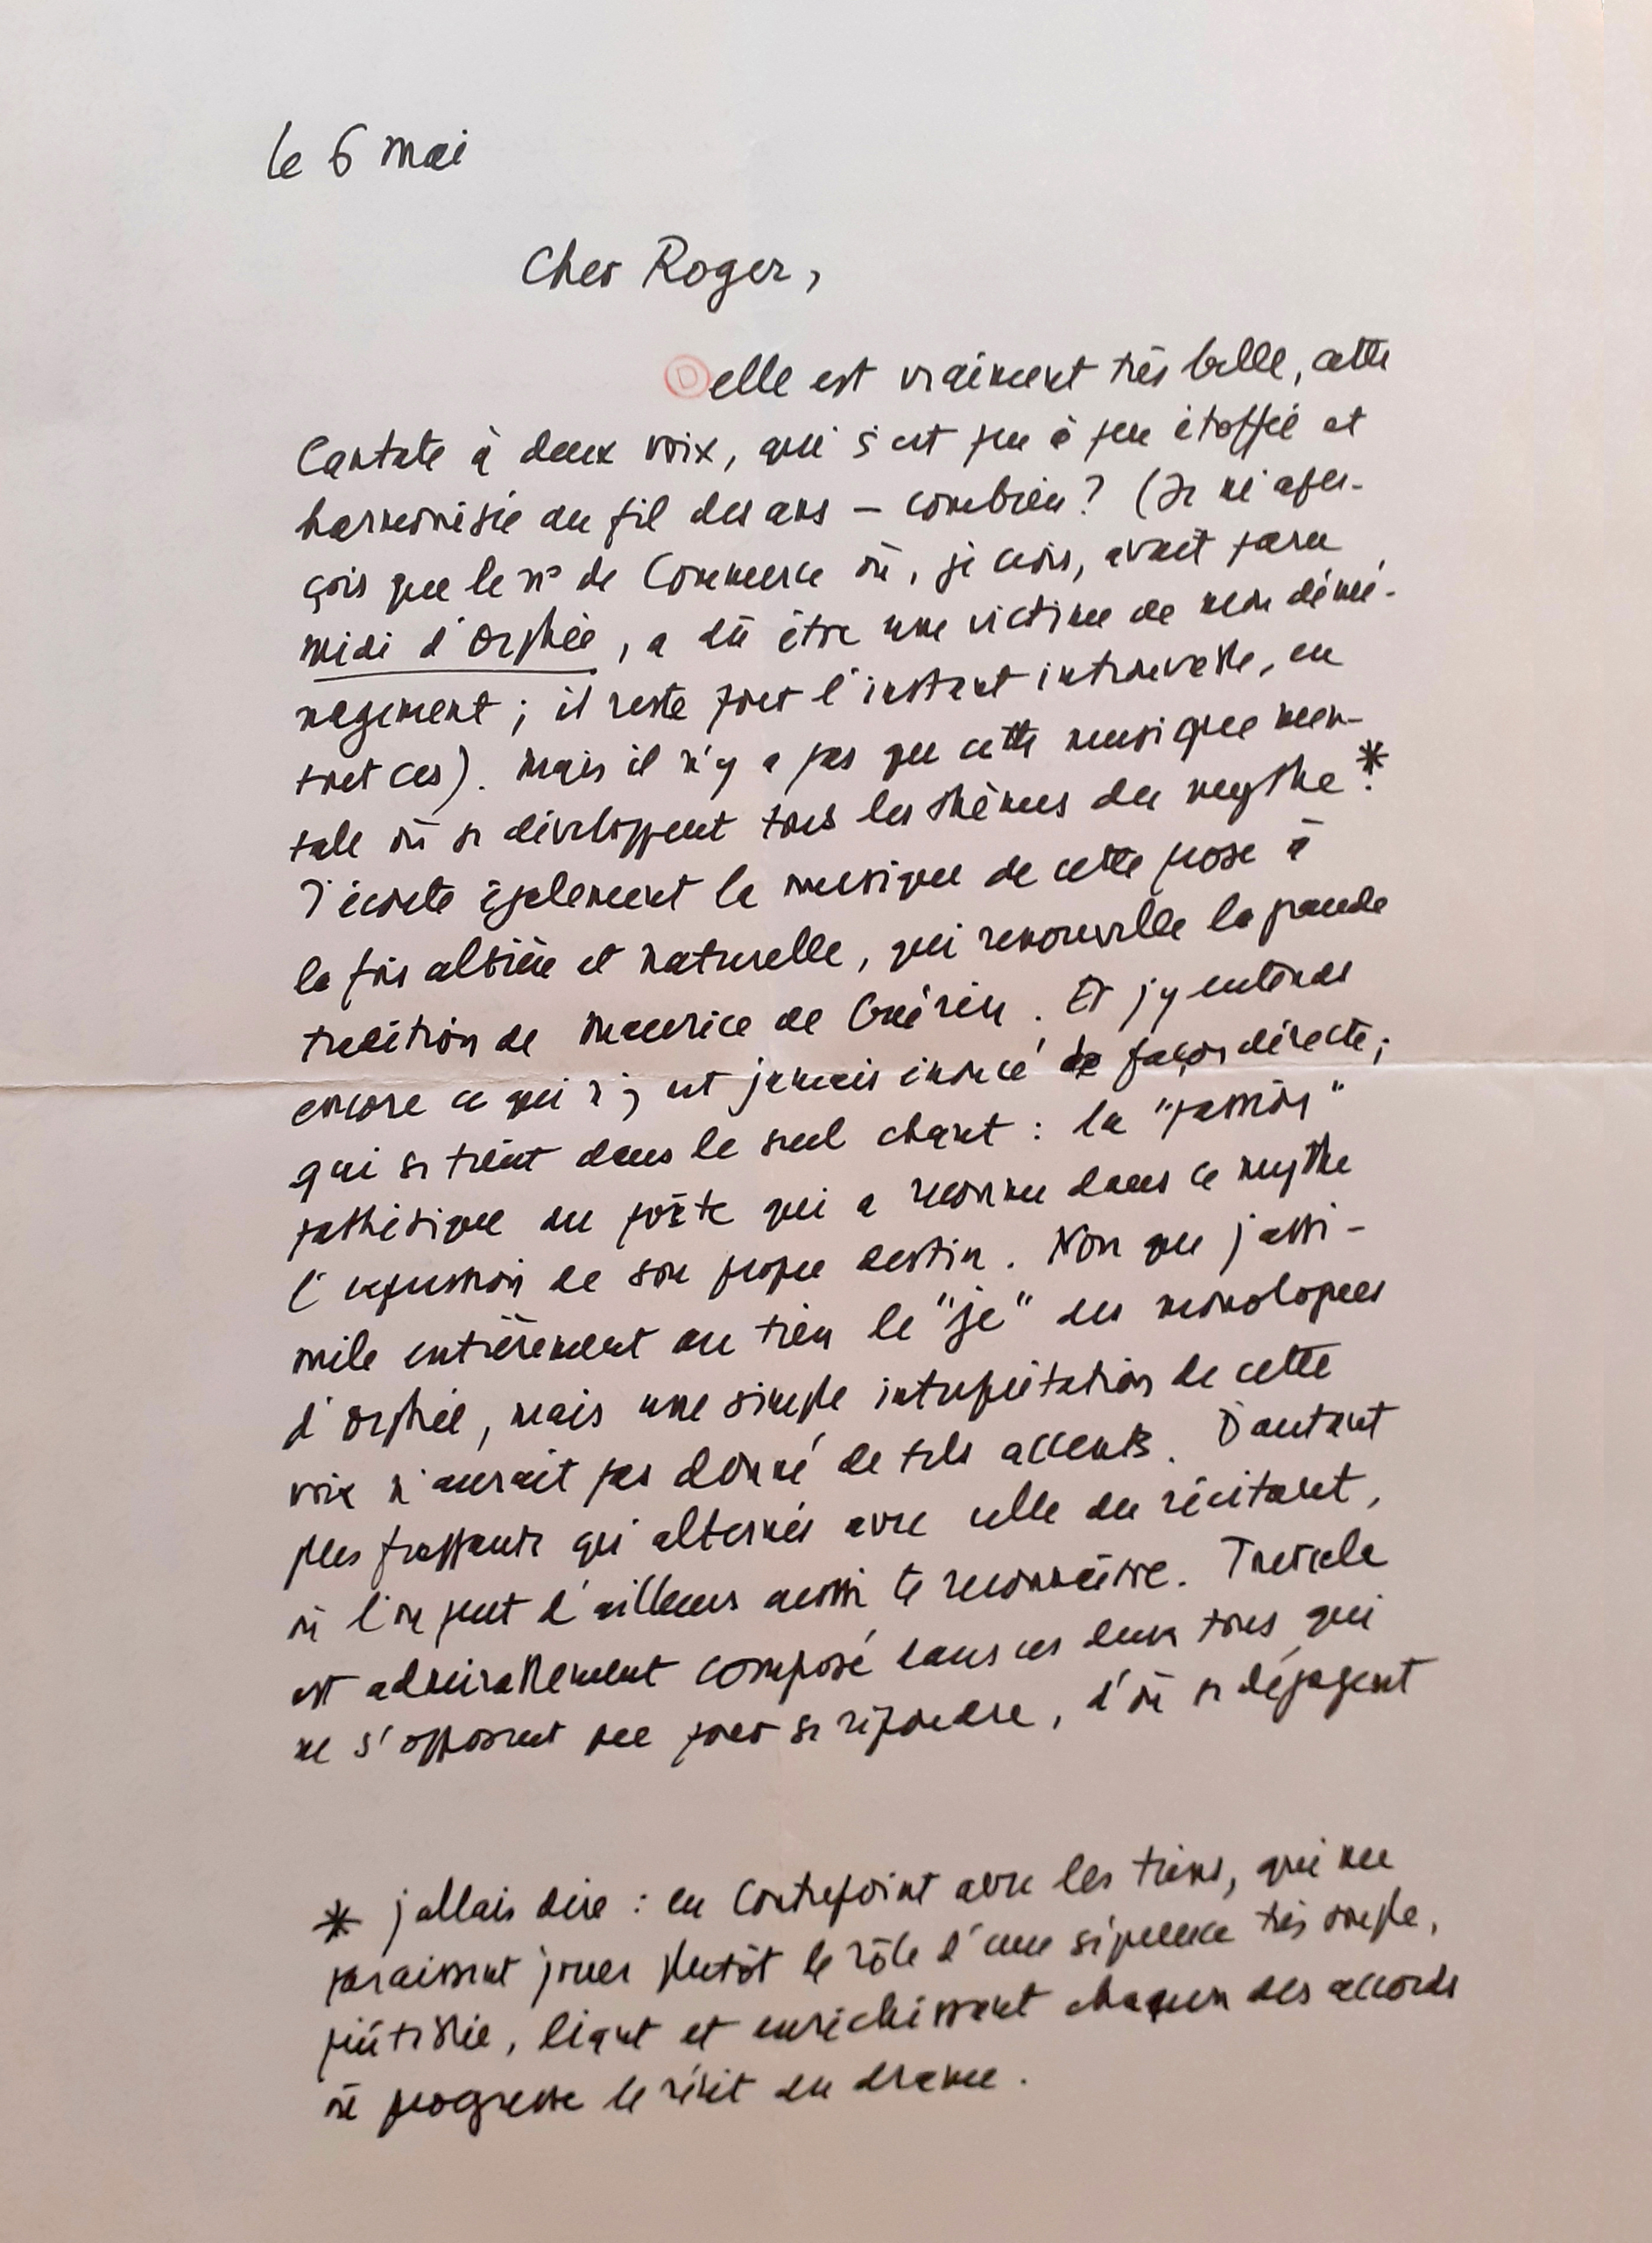 le 6 mai
Cher Roger,
D elle est vraiment très belle, cette
Cantate à deux voix, qui s'est peu à peu étoffée et
harmonisée au fil des ans – combien ? (Je m'aper-
çois que le n° de Commerce où, je crois, avait paru
midi d'Orphée, a dû être une victime de mon démé-
nagement ; il reste pour l'instant introuvable, en
tout cas). Mais il n'y a pas que cette musique men-
tale où se développent tous les thèmes du mythe.*
J'écoute également la musique de cette prose à
la fois altière et naturelle, qui renouvelle la grande
tradition de Maurice de Guérin. Et j'y entends
encore ce qui n'y est jamais énoncé de façon directe ;
qui se tient dans le seul chant : la "passion"
pathétique du poète qui a reconnu dans ce mythe
l'expression de son propre destin. Non que j'assi-
mile entièrement au tien le "je" des monologues
d'Orphée, mais une simple interprétation de cette
voix n'aurait pas donné de tels accents. D'autant
plus frappants qu'alternés avec celle du récitant,
où l'on peut d'ailleurs aussi te reconnaître. Tout cela
est admirablement composé dans ces deux tons qui
ne s'opposent que pour se répondre, d'où se dégagent
* j'allais dire : en Contrepoint avec les tiens, qui me
paraissent jouer plutôt le rôle d'une séquence très souple,
liant et enrichissant chacun des accords
où progresse le récit du drame.